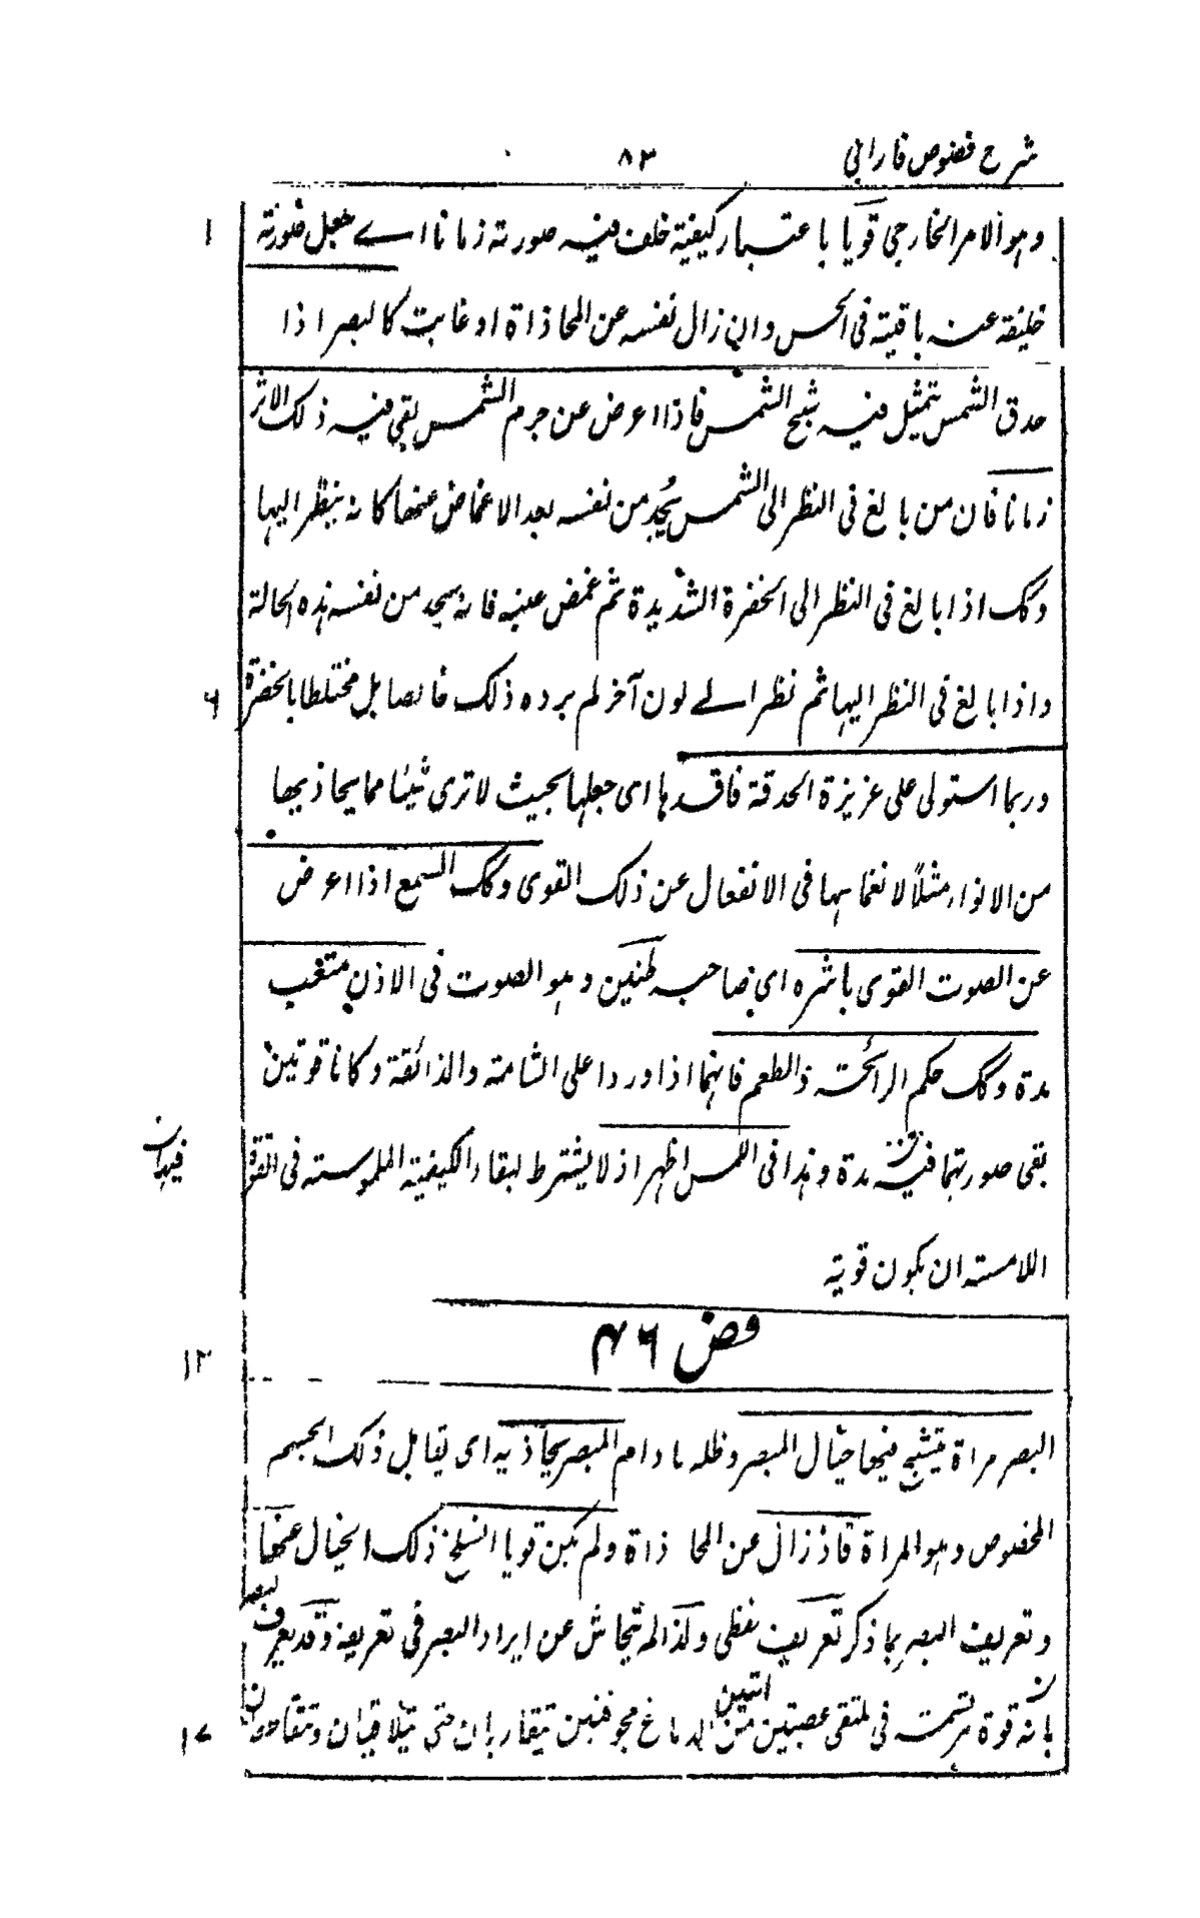 شرح فصوص فارابی ۸۳
وهو الامر الخارجی قویا باعتبار کیفیة خلف فیه صورته زمانا اے جعل صورته ۱
خلیفة عنه باقیة فی الحس وان زال نفسه عن المحاذاة او غابت کالبصر اذا
حدق الشمس یتمثل فیه شبح الشمس فاذا اعرض عن جرم الشمس بقی فیه ذلک الاثر
زمانا فان من بالغ فی النظر الی الشمس یجد من نفسه بعد الاغماض عنها کانه ینظر الیها
وکک اذا بالغ فی النظر الی الخضرة الشدیدة ثم غمض عینیه فانه یجد من نفسه هذه الحالة
واذا بالغ فی النظر الیها ثم نظر الے لون آخر لم یرده ذلک خالصا بل مختلطا بالخضرة ۶
وربما استولی علی غریزة الحدقة فافسدها ای جعلها بحیث لا تری شیئا مما یحاذیها
من الانوار مثلاً لانغماسها فی الانفعال عن ذلک القوی وکک السمع اذا اعرض
عن الصوت القوی باشره ای صاحبه طنین وهو الصوت فی الاذن متعب
مدة وکک حکم الرائحة والطعم فانهما اذا وردا علی الشامة والذائقة وکانا قوتین
بقی صورتهما فیه مدة وهذا فی اللمس اظهر اذ لا یشترط لبقاء الکیفیة الملموسة فی القوة
فیهما ن
اللامسة ان یکون قویة
فص ۴۶
۱۲
البصر مراة یتشبح فیها خیال المبصر وظله ما دام المبصر یحاذیه ای یقابل ذلک الجسم
المخصوص وهو المراة فاذ زال عن المحاذاة ولم یکن قویا انسلخ ذلک الخیال عنها
وتعریف البصر بما ذکر تعریف لفظی ولذا لم یتحاش عن ایراد البصر فی تعریفه وقد یعرف البصر
بانه قوة مرتسمة فی ملتقی عصبتین اتیین من الدماغ مجوفتین یتقاربان حتی یتلاقیان وتتقاطعان ۱۷